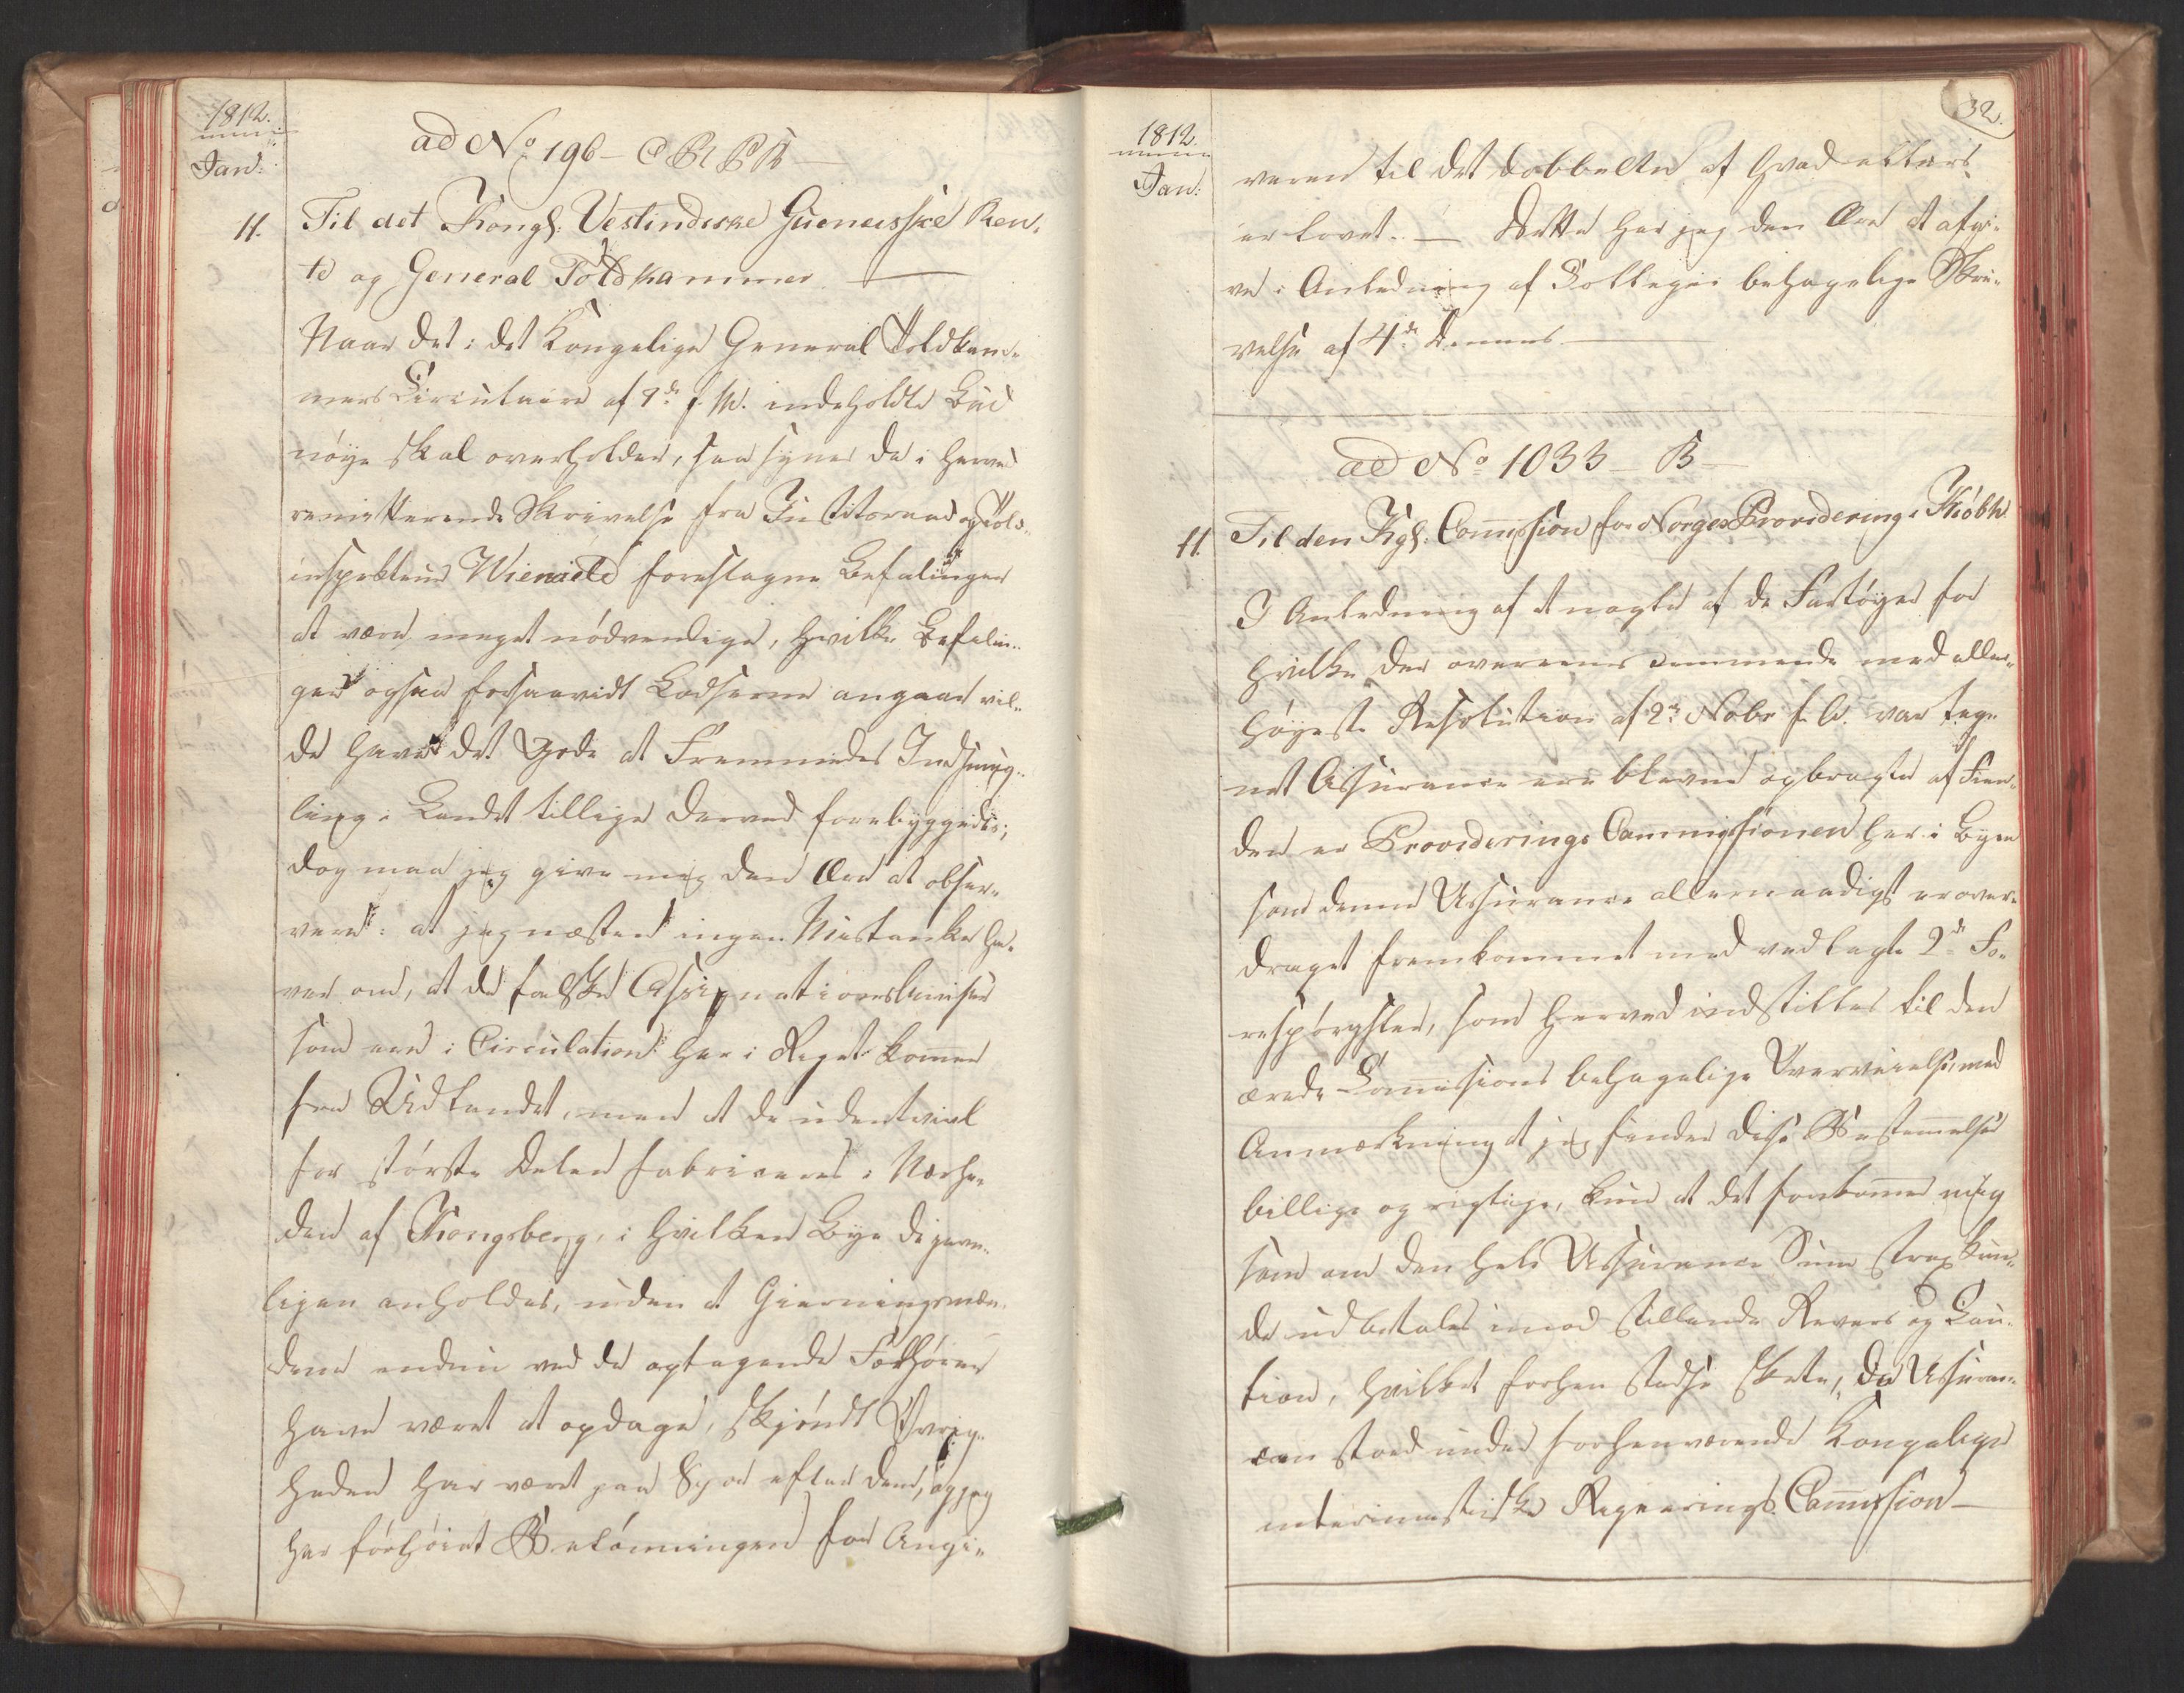 1812.
Jan:
ad No 196 - C B1 P R -
11.
Til det Kongl: Vestindiske Gueneisske Ren-
te og General Toldkammer
Naar det i det Kongelige General Toldkam-
mers Circulaire af 7de f. M. indeholdte Bud
nøye skal overholdes, saa synes de i herved
remitterende Skrivelse fra Justitsraad og Told-
inspekteur Wienield foreslagne Befalinger
at være meget nødvendige, hvilke Befalin-
ger ogsaa forsaavidt Lodserne angaar vil-
de have det Gode at Fremmedes Indsmug-
ling i Landet tillige derved forebyggedes;
dog maa jeg give mig den Ære at obser-
vere: at jeg næsten ingen Mistanke ha-
ver om, at de falske Assignationsbeviser
som ere i Circulation her i Riget kommer
fra Udlandet, men at de udentvivl
for største Delen fabriceres i Nærhe-
den af Kongsberg, i hvilken Bye de jævn-
ligen anholdes, uden at Gierningsmæn-
dene endnu ved de optagende Forhører
have været at opdage, skjøndt Øvrig-
heden har været paa Spor efter dem, og jeg
har forhøiet Belønningen for Angi-
32.
1812.
Jan:
veren til det dobbelte af hvad ellers
er lovet. — Dette har jeg den Ære at afgi-
ve i Anledning af Collegii behagelige Skri-
velse af 4de Dennes —
ad No 1033 - B -
11.
Til den Kgl. Commission for Norges Providering i Kiøbh
I Anledning af at nogle af de Fartøyer for
hvilke der overeensstemmende med aller-
høyeste Resolution af 2de Nobr f. A. var teg-
net Assurance ere blevne opbragte af Fien-
den er Providerings Commissionen her i Byen
som denne Assurance allernaadigst er over-
draget fremkommet med vedlagte 2de Fo-
respørgsler, som herved indstilles til den
ærede Commissions behagelige Overveielse, med
Anmærkning at jeg finder disse Bestemmelser
billige og rigtige, kun at det forekommer mig
som om den hele Assurance Sum strax kun-
de udbetales imod stillende Revers og Cau-
tion, hvilket forhen stedse skete, da Assuran-
cen stod under forhenværende Kongelige
interimistiske Regierings Commission —